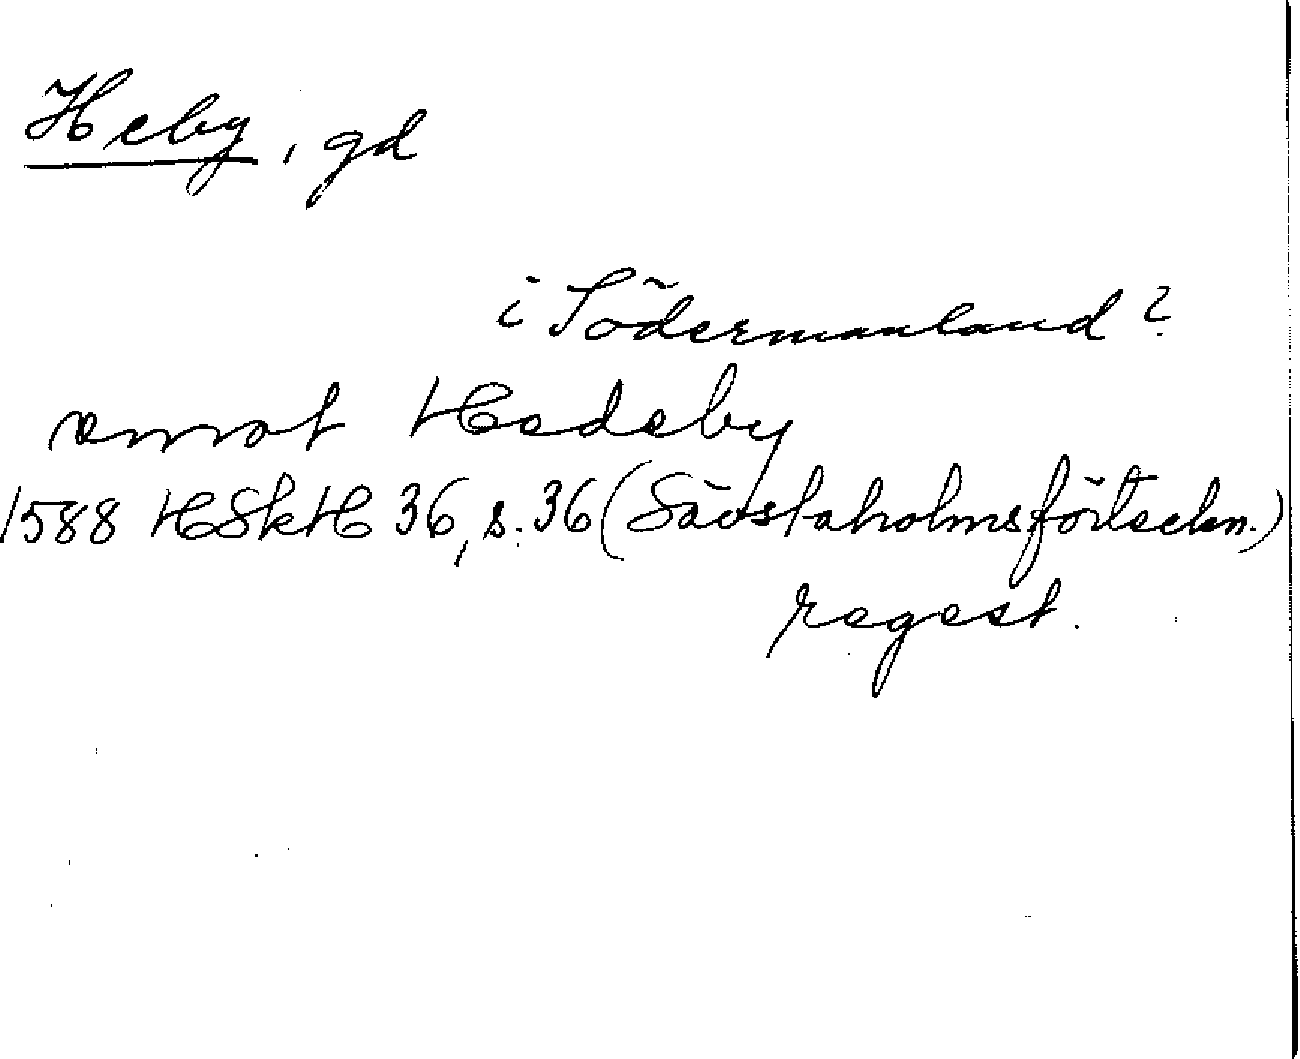 Heby, gd
i Södermanland?
emot Hedeby
1588 HSkH 36, s. 36 (Sävstaholmsförteckn.)
regest.